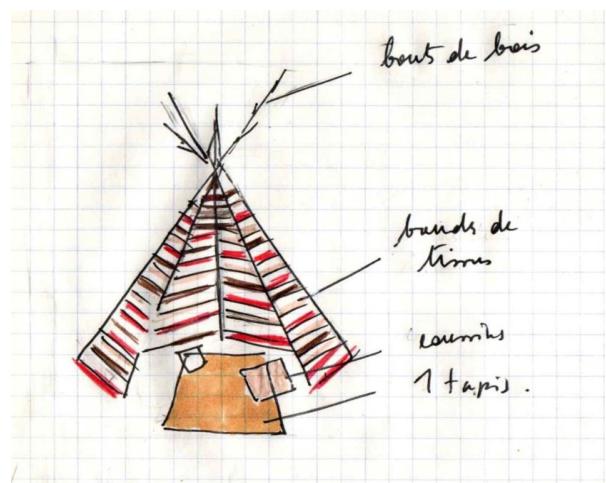 bouts de bois
bandes de
tissus
coussins
1 tapis.